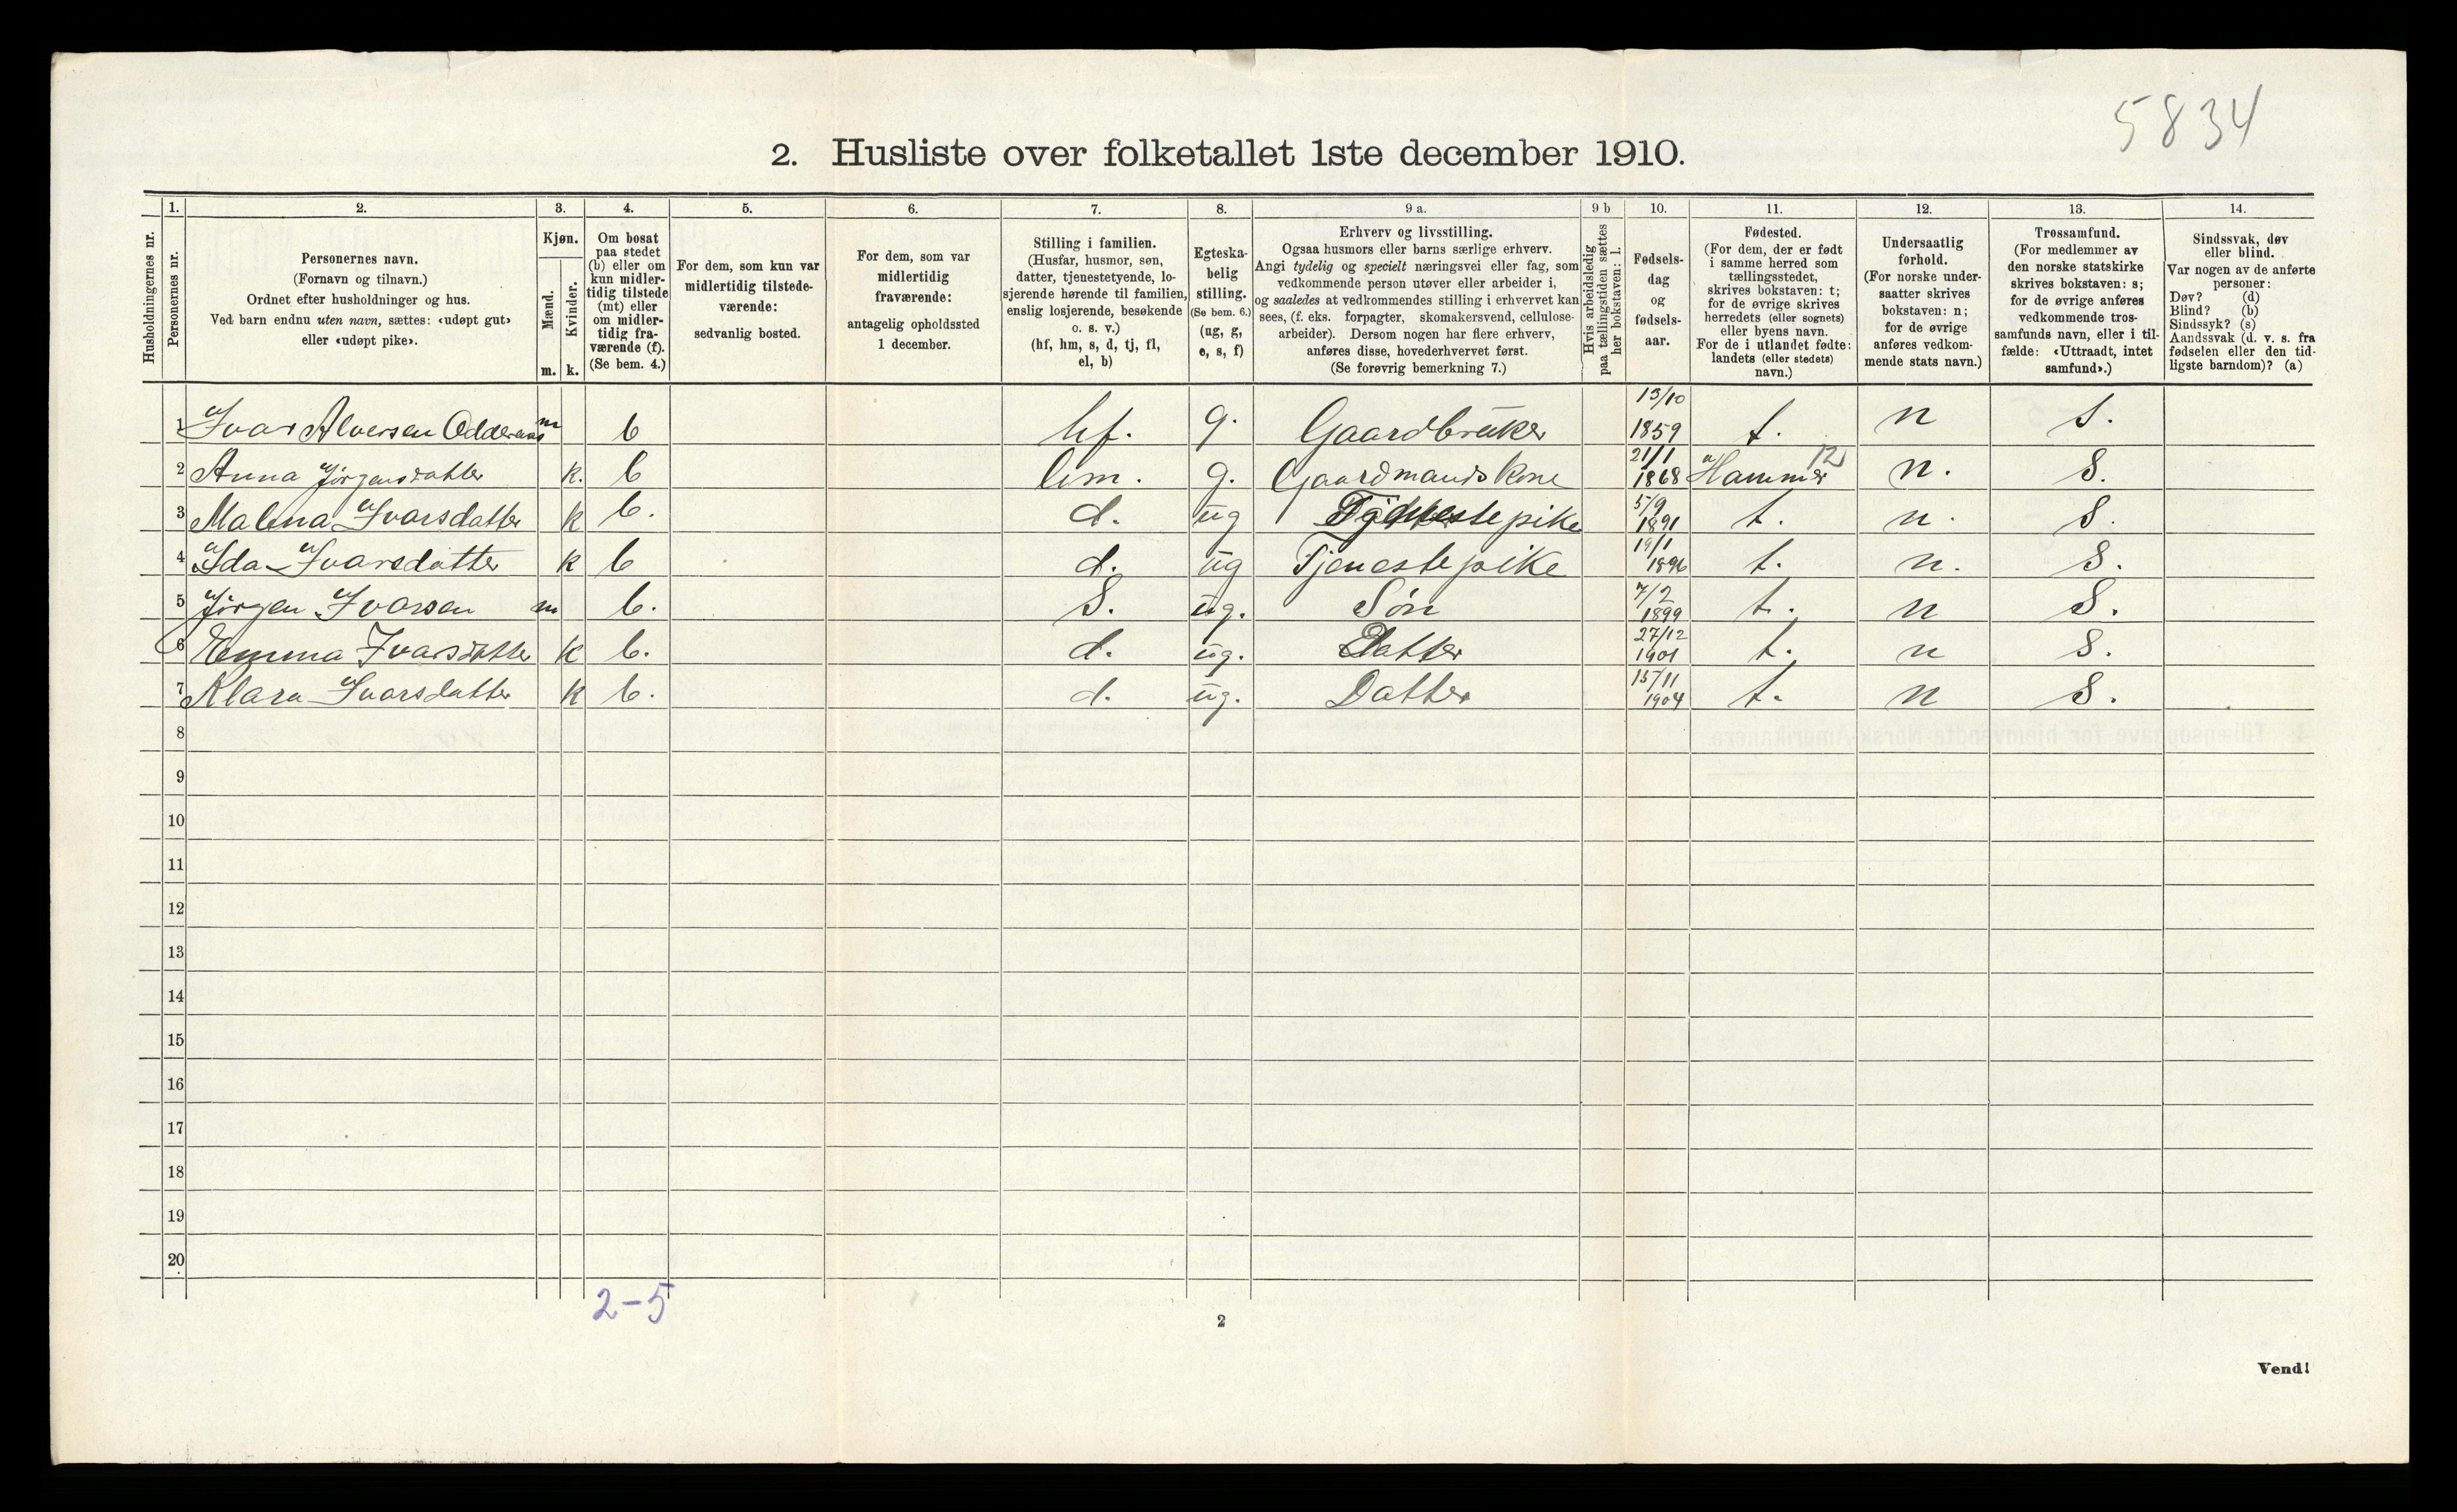 5834
2. Husliste over folketallet 1ste december 1910.
Husholdningernes nr.
1.
Personernes nr.
2.
Personernes navn.
(Fornavn og tilnavn.)
Ordnet efter husholdninger og hus.
Ved barn endnu uten navn, sættes: «udøpt gut»
eller «udøpt pike».
3.
Kjøn.
Mænd.
Kvinder.
m. k.
4.
Om bosat
paa stedet
(b) eller om
kun midler-
tidig tilstede
(mt) eller
om midler-
tidig fra-
værende (f).
(Se bem. 4.)
5.
For dem, som kun var
midlertidig tilstede-
værende:
sedvanlig bosted.
6.
For dem, som var
midlertidig
fraværende:
antagelig opholdssted
1 december.
7.
Stilling i familien.
(Husfar, husmor, søn,
datter, tjenestetyende, lo-
sjerende hørende til familien,
enslig losjerende, besøkende
o. s. v.)
(hf, hm, s, d, tj, fl,
el, b)
8.
Egteska-
belig
stilling.
(Se bem. 6.)
(ug, g,
e, s, f)
9 a.
Erhverv og livsstilling.
Ogsaa husmors eller barns særlige erhverv.
Angi tydelig og specielt næringsvei eller fag, som
vedkommende person utøver eller arbeider i,
og saaledes at vedkommendes stilling i erhvervet kan
sees, (f. eks. forpagter, skomakersvend, cellulose-
arbeider). Dersom nogen har flere erhverv,
anføres disse, hovederhvervet først.
(Se forøvrig bemerkning 7.)
9 b
Hvis arbeidsledig
paa tællingstiden sættes
her bokstaven: l.
10.
Fødsels-
dag
og
fødsels-
aar.
11.
Fødested.
(For dem, der er født
i samme herred som
tællingsstedet,
skrives bokstaven: t;
for de øvrige skrives
herredets (eller sognets)
eller byens navn.
For de i utlandet fødte:
landets (eller stedets)
navn.)
12.
Undersaatlig
forhold.
(For norske under-
saatter skrives
bokstaven: n;
for de øvrige
anføres vedkom-
mende stats navn.)
13.
Trossamfund.
(For medlemmer av
den norske statskirke
skrives bokstaven: s;
for de øvrige anføres
vedkommende tros-
samfunds navn, eller i til-
fælde: «Uttraadt, intet
samfund».)
14.
Sindssvak, døv
eller blind.
Var nogen av de anførte
personer:
Døv? (d)
Blind? (b)
Sindssyk? (s)
Aandssvak (d. v. s. fra
fødselen eller den tid-
ligste barndom)? (a)
1 Ivar Alversen m b hf. g. Gaardbruker 13/10 1859 t. n s.
2 Anna Jørgensdatter k. b hm. g. Gaardmands kone 21/1 1868 Hammer 12 n. S.
3 Malena Ivarsdatter k b. d. ug Tjeneste pike 5/9 1891 t. n. S.
4 Ida Ivarsdatter k b d. ug Tjeneste pike 19/1 1896 t. n. S.
5 Jörgen Ivarsen m b. S. ug. Søn 7/2 1899 t. n S.
6 Emma Ivarsdatter k b. d. ug. Datter 27/12 1901 t. n S.
7 Klara Ivarsdatter k b. d. ug. Datter 15/11 1904 t. n S.
8
9
10
11
12
13
14
15
16
17
18
19
20
2-5
2
Vend!